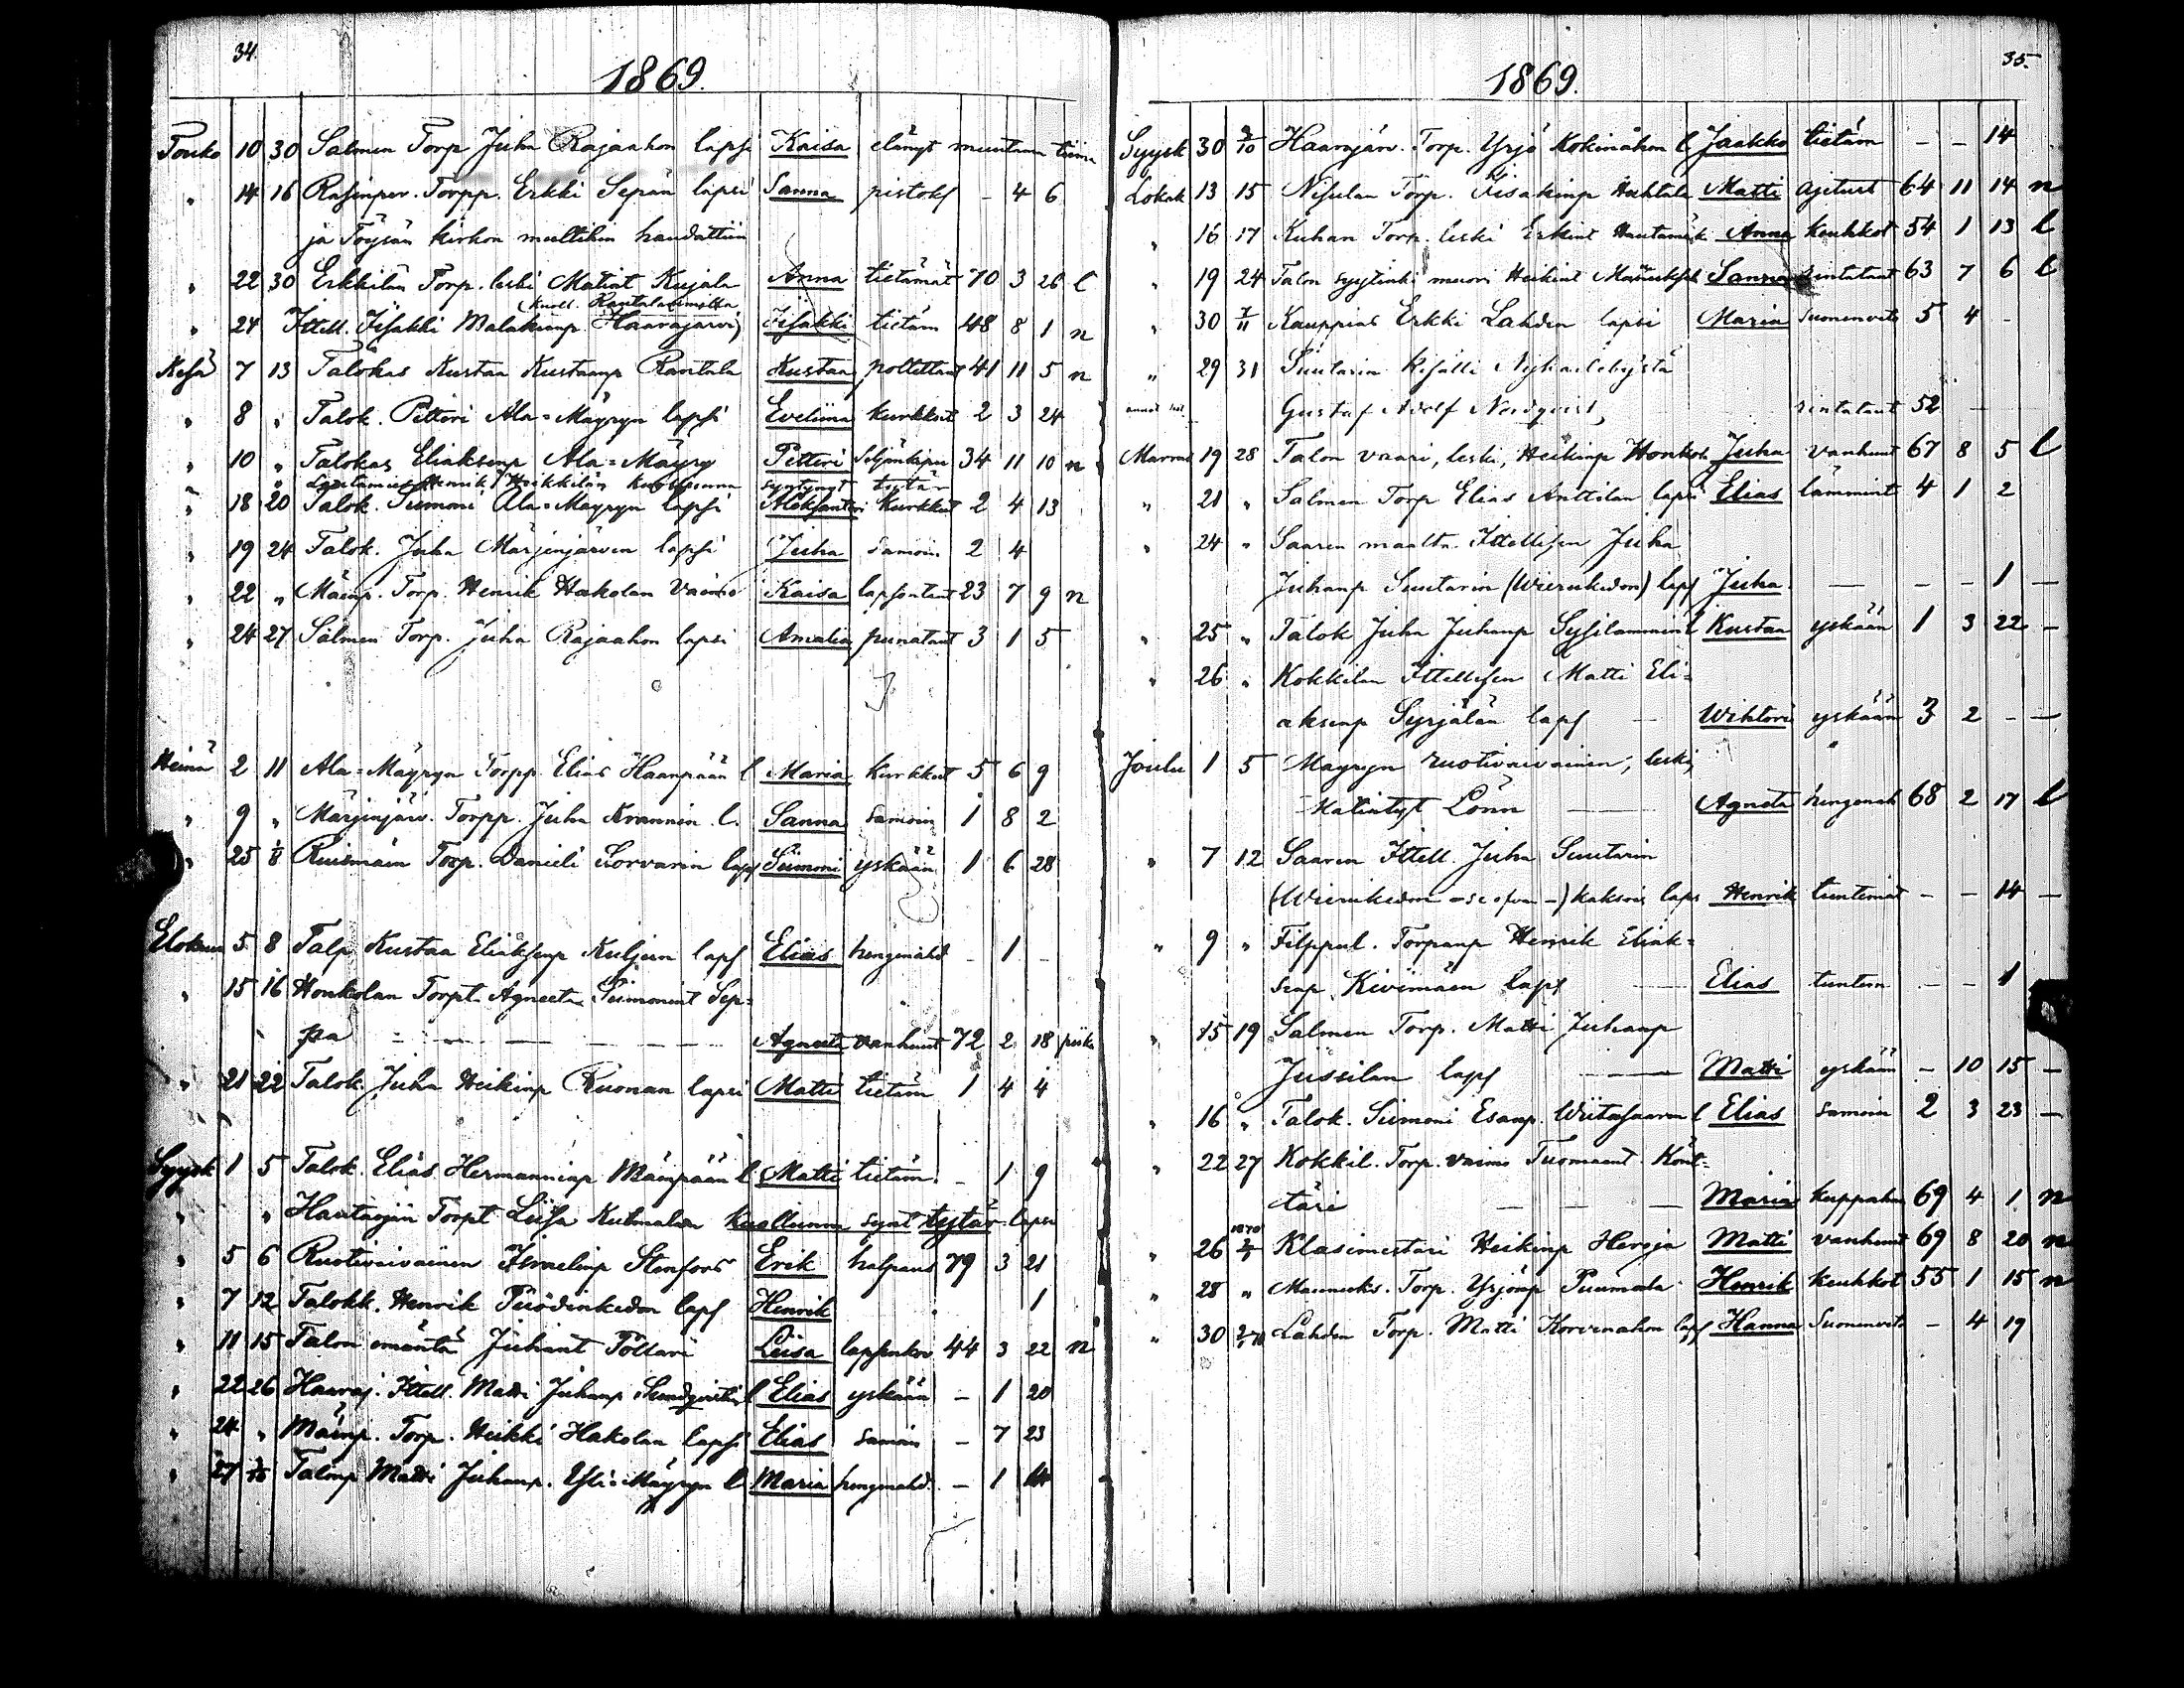 34.
1869.
Touko 10 30 Salmen Torp Juha Rajaahon lapsi Kaisa elänyt muutama tiima
" 14 16 Torpp. Erkki Sepän lapsi Sanna pistoks - 4 6
ja Töysän kirkon multihin haudattiin
" 22 30 Erkkilän Torp. leski Matint Kujala Anna tietämät 70 3 26 l
" 24 Ittell. Iisakki Malakimp. Haarajärvi) Iisakki tietäm 48 8 1 n
Kesä 7 13 Talokas Kustaa Kustaanp Rantala Kustaa polttetaut 41 11 5 n
" 8 " Talok. Petteri Ala=Mäyryn lapsi Eveliina kurkkut 2 3 24
" 10 " Talokas Eliaksenp Ala=Mäyry Petteri 34 11 10 n
" Henrik Heikkilän syntynyt tytär
" 18 20 Talok. Siimoni Ala=Mäyryn lapsi Aleksanteri kurkkut 2 4 13
" 19 24 Talok. Juha Märjenjärven lapsi Juha samoin 2 4
" 22 " Mäinp. Torp. Henrik Hakolan vaimo Kaisa lapsentaut 23 7 9 n
" 24 27 Salmen Torp. Juha Rajaahon lapsi Amalia punataut 3 1 5
Heinä 2 11 Ala=Mäyryn Torpp. Elias Haanpään l Maria kurkkut 5 6 9
" 9 " Märjinjärv. Torpp. Juha l. Sanna samoin 1 8 2
" 25 1/8 Ruismäin Torp. Danieli Korvarin laps Siimoni yskään 1 6 28
Elokuu 5 8 Talp Kustaa Eliaksenp Kuljun laps Elias hengenahd - 1 -
" 15 16 Honkolan Torpt. Agneeta Siimonint Sep=
pä - - - Agneeta vanhuut 72 2 18 piika
" 21 22 Talok. Juha Heikinp Ruonan lapsi Matti tietäm 1 4 4
Syysk 1 5 Talok. Elias Hermanninp Mäinpään l. Matti tietäm. - 1 9
" " Hautaojan Torpt Liisa Kutmahon kuollunna synt tytär lapsi
" 5 6 Ruotivaivainen Israelinp Stenfors Erik halpaus 79 3 21
" 7 12 Talokk. Henrik laps Henrik 1
" 11 15 Talon emäntä Juhant Pöllari Liisa lapsenkov 44 3 22 n
" 22 26 Haaraj. Ittell. Matti Juhanp Sundqvistin l Elias yskään - 1 20
" 24 " Mäinp. Torp. Heikki Hakolan lapsi Elias samoin - 7 23
" 27 3/10 Talonp Matti Juhanp. Yli=Mäyryn l Maria hengenahd. - 1 14
35.
1869.
Syysk 30 3/10 Haarajärv. Torp. Yrjö Kokinahon l Jaakko tietäm - - 14
Lokak 13 15 Nisulan Torp. Iisakinp Huhtala Matti ajetust 64 11 14 n
" 16 17 Kuhan Torp. leski Erkint Hautamäk Anna keuhkot 54 1 13 l
" 19 24 Talon syytinki muori Heikint Sanna rintataut 63 7 6 l
" 30 7/11 Kauppias Erkki Lahden lapsi Maria suonenveto 5 4 -
" 29 31 Suutarin kisälli Nykarlebystä
Gustaf Adolf Nordqvist, rintataut 52 -
Marras 19 28 Talon vaari, leski, Heikinp Honkola Juha vanhuut 67 8 5 l
" 21 " Salmen Torp Elias Anttilan lapsi Elias lämmint 4 1 2
" 24 " Saaren maalta. Ittellisen Juha
Juhanp Suutarin (Wierukedon) laps Juha - - - 1 -
" 25 " Talok Juha Juhanp Sysilammin l Kustaa yskään 1 3 22 -
" 26 " Kokkilan Ittellisen Matti Eli=
aksenp Syrjälän laps - Wihtori yskään 3 2 - -
Joulu 1 5 Mäyryn ruotivaivainen, leski,
Matintyt Lönn - Agneta hengenah 68 2 17 l
" 7 12 Saaren Ittell. Juha Suutarin
(Wierukedon -) kaksois laps Henrik tuntemat - - 14 -
" 9 " Filppul. Torpanp Henrik Eliak=
senp. Kivimäen laps - Elias tuntem - - 1
" 15 19 Salmen Torp. Matti Juhanp
Jussilan laps - Matti yskään - 10 15 -
" 16 " Talok. Siimoni Esanp. Wiitasaaren l Elias samoin 2 3 23 -
" 22 27 Kokkil. Torp. vaimo Tuomaant. Könt=
täri - - - Maria 69 4 1 n
" 26 1870 2/1 Klasimestari Heikinp Heroja Matti vanhuut 69 8 20 n
" 28 " Torp. Yrjönp Puumala Henrik keuhkot 55 1 15 n
" 30 Lahden Torp. Matti Korvenahon laps Hanna suonenveto - 4 19